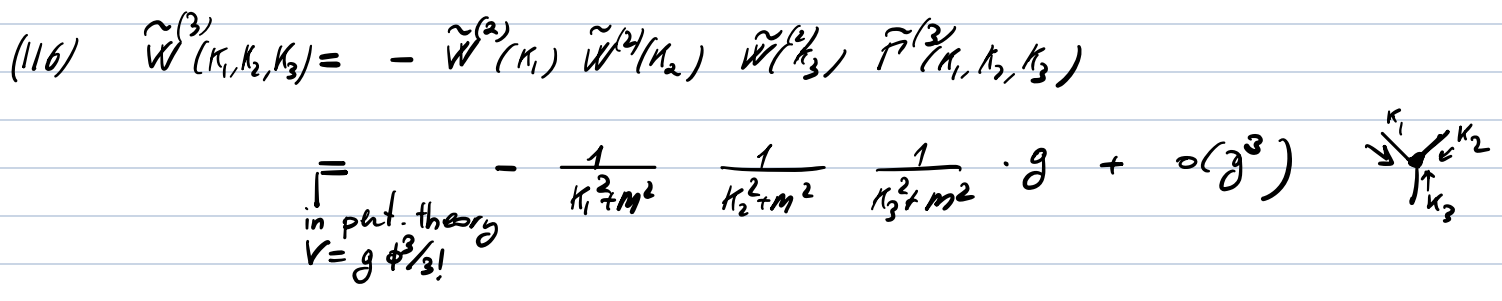 (116) W̃^(3)(K₁,K₂,K₃) = - W̃^(2)(K₁) W̃^(2)(K₂) W̃^(2)(K₃) Γ̃^(3)(K₁,K₂,K₃)
= - 1/(K₁²+m²) 1/(K₂²+m²) 1/(K₃²+m²) · g + o(g³) K₁ K₂ K₃
in pert. theory
V = g ϕ³/3!